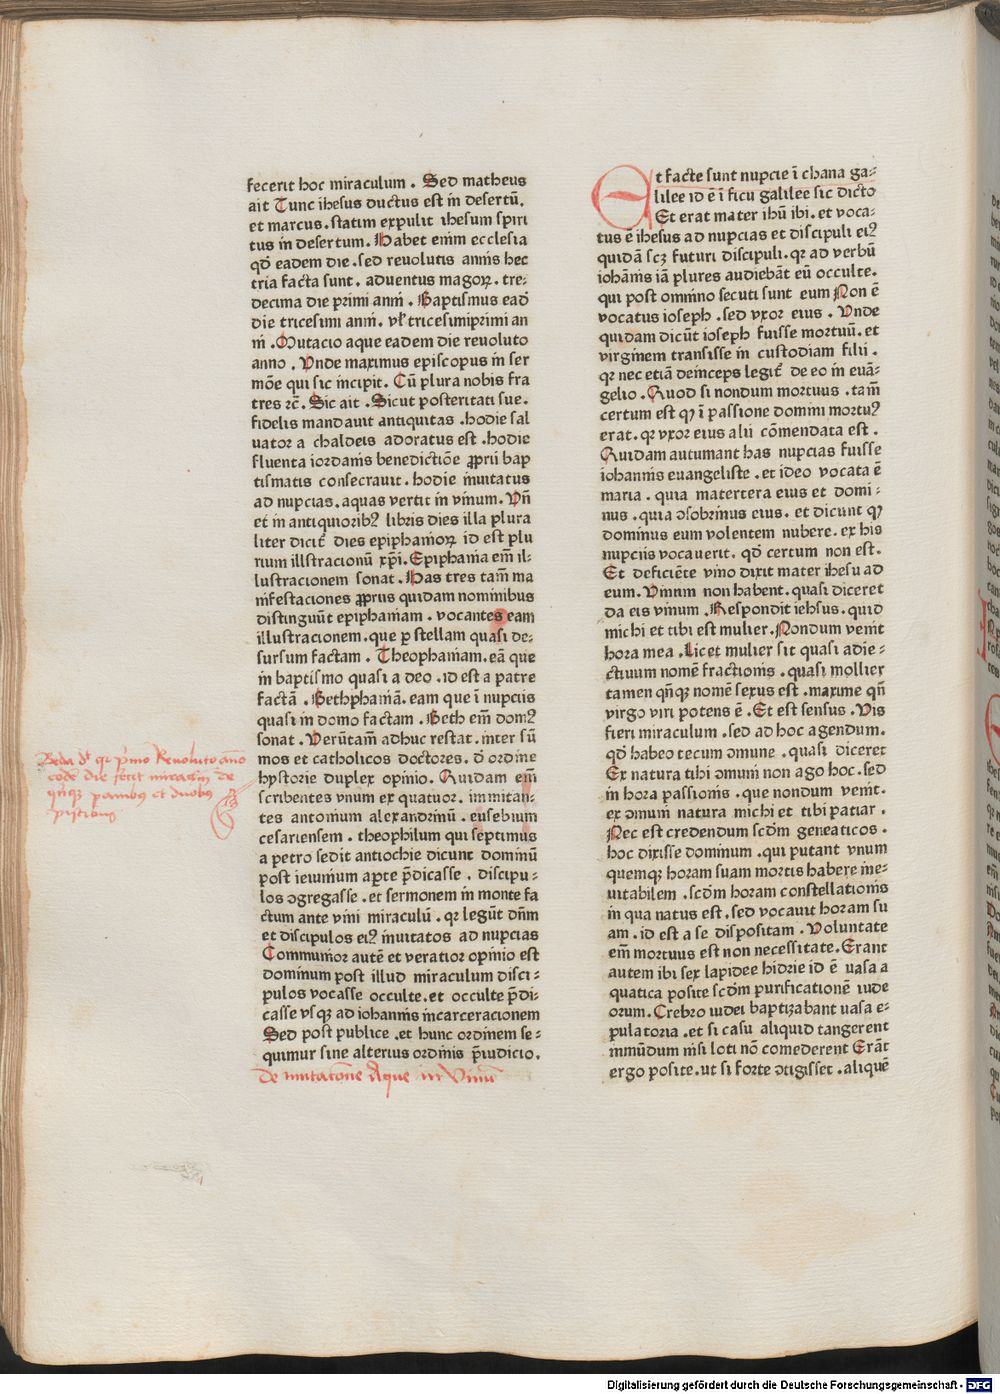 fecerit hoc miraculum . Sed matheus
ait Tunc ihesus ductus est in desertū.
et marcus. statim expulit ihesum spiri
tus in desertum. Habet enim ecclesia
qđ eadem die . sed reuolutis annis hec
tria facta sunt . aduentus magoꝝ . tre-
decima die primi anni . Baptismus eađ
die tricesimi anni. vƚ tricesimiprimi an
ni . Mutacio aque eadem die reuoluto
anno . Vnde maximus episcopus in ser
mōe qui sic incipit. Cū plura nobis fra
tres ꝛc̄ . Sic ait . Sicut posteritati sue .
fidelis mandauit antiquitas . hodie sal
uator a chaldeis adoratus est . hodie
fluenta iordanis benedictiōe ꝓprii bap
tismatis consecrauit. hodie inuitatus
ad nupcias. aquas vertit in vinum. Vn̄
et in antiquioribꝰ libris dies illa plura
liter dicit̄ dies epiphaniorꝝ id est plu
rium illstracionū xp̄i . Epiphania em̄ il-
lustracionem sonat . Has tres tam̄ ma
nifestaciones ꝓprus quidam nominibus
distinguūt epiphaniam . vocantes eam
illustracionem. que ꝑ stellam quasi de-
sursum factam . Theophaniam. eā que
in baptismo quasi a deo . id est a patre
factā . Bethphaniā. eam que ī nupciis
quasi in domo factam . Beth em̄ domꝰ
sonat . Verūtam̄ adhuc restat. inter sū
mos et catholicos doctores. đ ordine
hystorie duplex opinio. Quidam em̄
scribentes vnum ex quatuor. immitan-
tes antonium alexandrinū . eusebium
cesariensem . theophilum qui septimus
a petro sedit antiochie dicunt dominū
post ieiunium aperte p̄dicasse . discipu-
los ꝯgregasse . et sermonem in monte fa
ctum ante vini miraculū . qꝛ legūt dn̄m
et discipulos eiꝰ inuitatos ad nupcias
Communior autē et veratior opinio est
dominum post illud miraculum disci-
pulos vocasse occulte. et occulte p̄di-
casse vsqꝫ ad iohannis incarceracionem
Sed post publice . et hunc ordinem se-
quimur sine alterius ordinis p̄iudicio.
De mutacōne Aque in Vinū
Beda dt̄ qꝛ p̄mo Reuoluto āno
eodē die fecit miracm̄ de
qn̄qꝫ panibus et duobus
piscibus
Et facte sunt nupcie ī chana ga-
lilee id ē ī ficu galilee sic dicto
Et erat mater ihū ibi . et voca-
tus ē ihesus ad nupcias et discipuli eiꝰ
quidā scꝫ futuri discipuli. qꝛ ad verbū
iohānis iā plures audiebāt eū occulte.
qui post omnino secuti sunt eum Non ē
vocatus ioseph . sed vxor eius . Vnde
quidam dicūt ioseph fuisse mortuū. et
virginem transisse in custodiam filii .
qꝛ nec etiā deinceps legit̄ de eo in euā-
gelio . Quod si nondum mortuus . tam̄
certum est qꝫ ī passione domini mortuꝰ
erat. qꝛ vxor eius alii cōmendata est .
Quidam autumant has nupcias fuisse
iohannis euangeliste . et ideo vocata ē
maria . quia matertera eius et domi-
nus . quia ꝯsobrinus eius. et dicunt qꝫ
dominus eum volentem nubere. ex his
nupciis vocauerit. qđ certum non est.
Et deficiēte vino dixit mater ihesu ad
eum. Vinum non habent. quasi diceret
da eis vinum . Respondit iehsus . quid
michi et tibi est mulier. Nondum venit
hora mea . Licet mulier sit quasi adie-
ctiuum nomē fractionis . quasi mollier
tamen qn̄qꝫ nomē sexus est . maxime qn̄
virgo viri potens ē . Et est sensus . Vis
fieri miraculum . sed ad hoc agendum.
qđ habeo tecum ꝯmune . quasi diceret
Ex natura tibi ꝯmuni non ago hoc. sed
in hora passionis . que nondum venit.
ex ꝯmuni natura michi et tibi patiar .
Nec est credendum scđm geneaticos .
hoc dixisse dominum . qui putant vnum
quemqꝫ horam suam mortis habere ine-
uitabilem . scđm horam constellationis
in qua natus est . sed vocauit horam su
am . id est a se dispositam . Voluntate
em̄ mortuus est non necessitate. Erant
autem ibi sex lapidee hidrie id ē vasa a
quatica posite scđm purificationē iude
orum. Crebro iudei baptizabant vasa e-
pulatoria . et si casu aliquid tangerent
inmūdum nisi loti nō comederent Erāt
ergo posite. ut si forte ꝯtigisset . aliquē
Digitalisierung gefördert durch die Deutsche Forschungsgemeinschaft - DFG